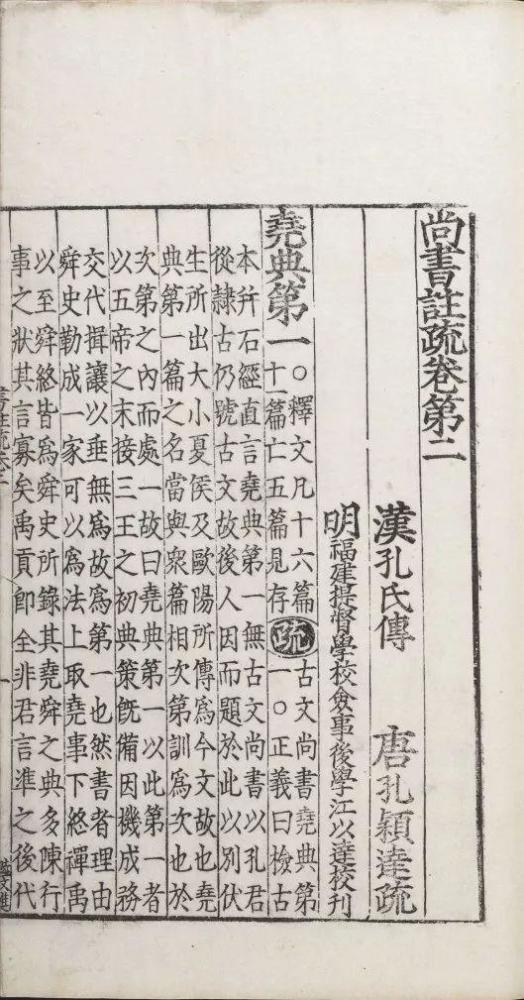 尚書註疏卷第二
漢孔氏傳 唐孔穎達疏
明福建提督學校僉事後學江以達校刊
堯典第一
○釋文凡十六篇
十一篇亡五篇見存
疏
古文尚書堯典第
一○正義曰檢古
本并石經直言堯典第一無古文尚書以孔君
從隸古仍號古文故後人因而題於此以別伏
生所出大小夏侯及歐陽所傳爲今文故也堯
典第一篇之名當與衆篇相次第訓爲次也於
次第之內而處一故曰堯典第一以此第一者
以五帝之末接三王之初典策旣備因機成務
交代揖讓以垂無爲故爲第一也然書者理由
舜史勒成一家可以爲法上取堯事下終禪禹
以至舜終皆爲舜史所錄其堯舜之典多陳行
事之狀其言寡矣禹貢卽全非君言準之後代